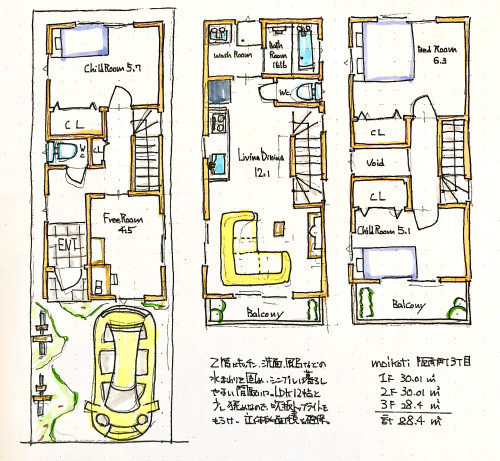 Child Room 5.7
CL
WC
CL
Free Room
4.5
ENT
Wash Room
Bath
Room
1616
WC
Living Dining
12.1
Balcony
Bed Room
6.3
CL
Void
CL
Child Room 5.1
Balcony
2階にキッチン、洗面、風呂などの
水まわりを固め、シンプルに暮らし
やすい間取りに。LDは12帖と
moikoti
3丁目
1F 30.01 ㎡
2F 30.01 ㎡
3F 28.4 ㎡
計 88.4 ㎡